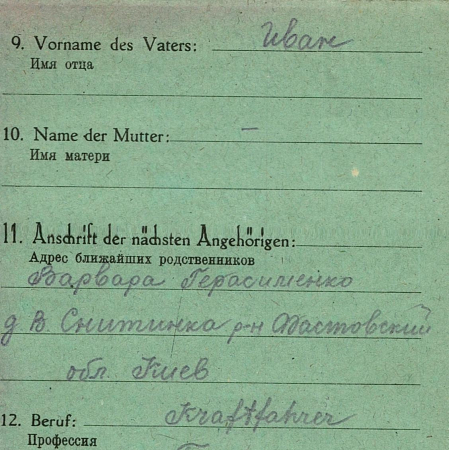 9. Vorname des Vaters: Иван
Имя отца
10. Name der Mutter: –
Имя матери
11. Anschrift der nächsten Angehörigen:
Адрес ближайших родственников
Варвара Герасименко
д В. Снитинка р-н Фастовский
обл. Киев
12. Beruf: Kraftfahrer
Профессия